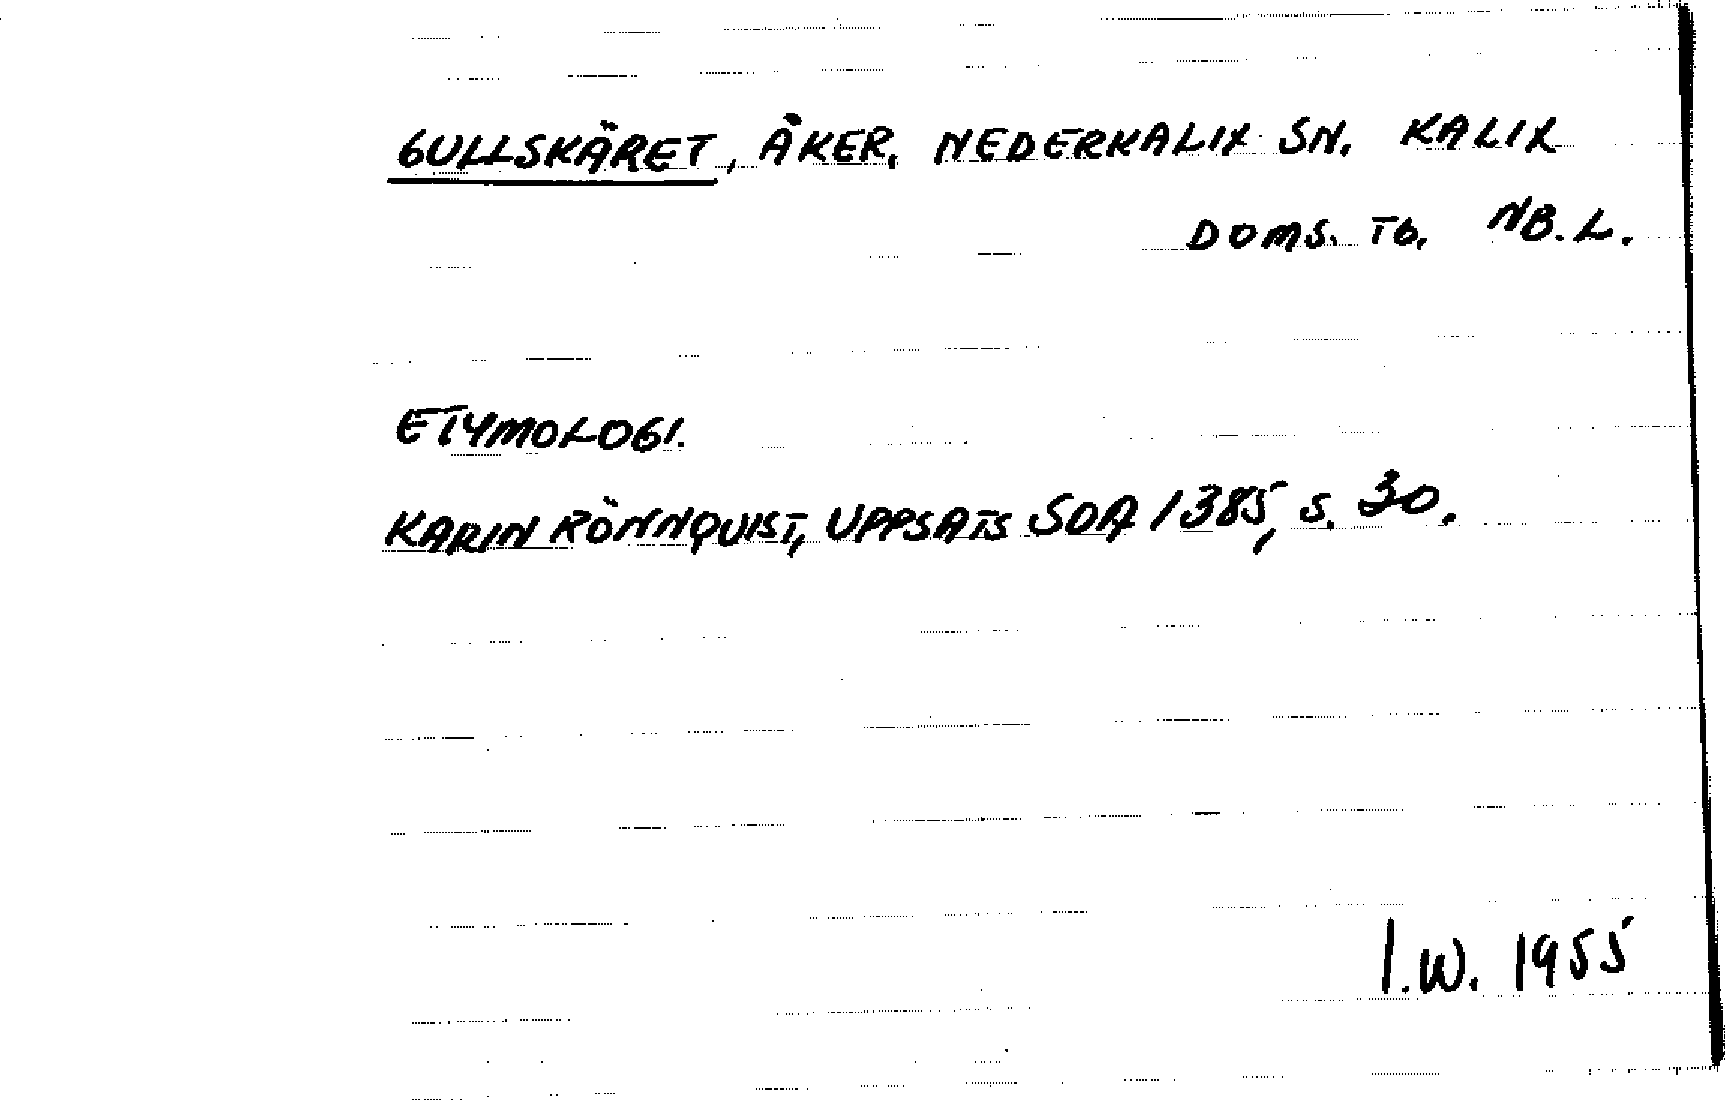 GULLSKÄRET, ÅKER, NEDERKALIX SN. KALIX
DOMS. TG. NB. L.
ETYMOLOGI.
KARIN RÖNNQUIST, UPPSATS SOA 1385, S. 30.
I.W. 1955